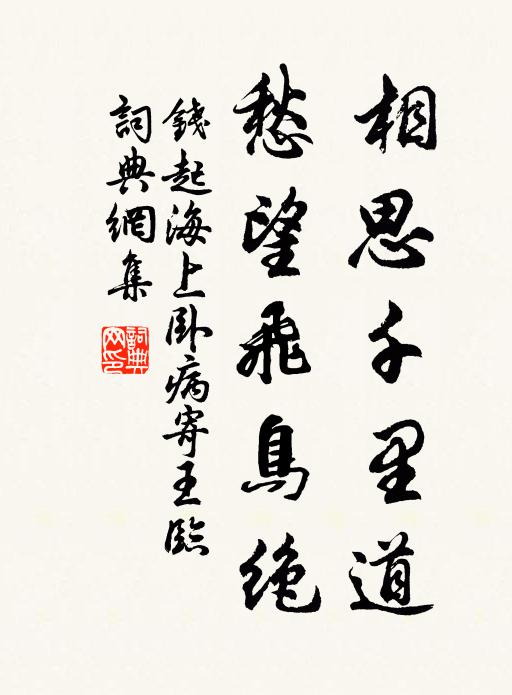 相思千里道
愁望飛鳥絶
錢起海上卧病寄王臨
詞典網集
詞典網印